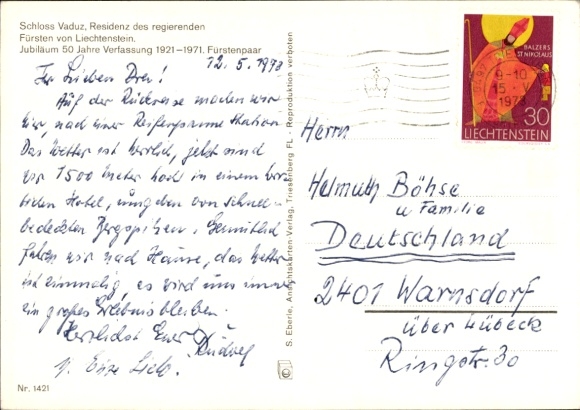 Schloss Vaduz, Residenz des regierenden
Fürsten von Liechtenstein.
Jubiläum 50 Jahre Verfassung 1921–1971. Fürstenpaar
12.5.1973
Ihr Lieben Drei!
Auf der Rückreise machen wir
hier, nach einer Reifenpanne Station.
Das Wetter ist herrlich, jetzt sind
wir 1500 Meter hoch in einem
Hotel, umgeben von schnee-
bedeckten Bergspitzen. Gemütlich
fahren wir nach Hause, das Wetter
ist einmalig, es wird uns immer
ein großes Erlebnis bleiben.
Herzlichst Euer Rudolf
Nr. 1421
S. Eberle, Ansichtskarten-Verlag, Triesenberg FL - Reproduktion verboten
BALZERS
ST. NIKOLAUS
9-10
15. V.
1973
30
LIECHTENSTEIN
Herrn
Helmuth Böhse
u Familie
Deutschland
2401 Warnsdorf
über Lübeck
Ringstr. 30